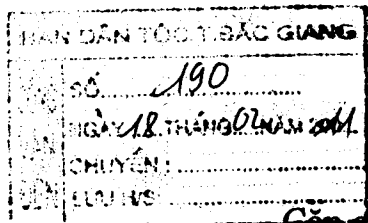 BAN DÂN TỘC T.BẮC GIANG
SỐ.........190
NGÀY 18 THÁNG 02 NĂM 2011
CHUYỂN:
ĐẾN LƯU H/S: